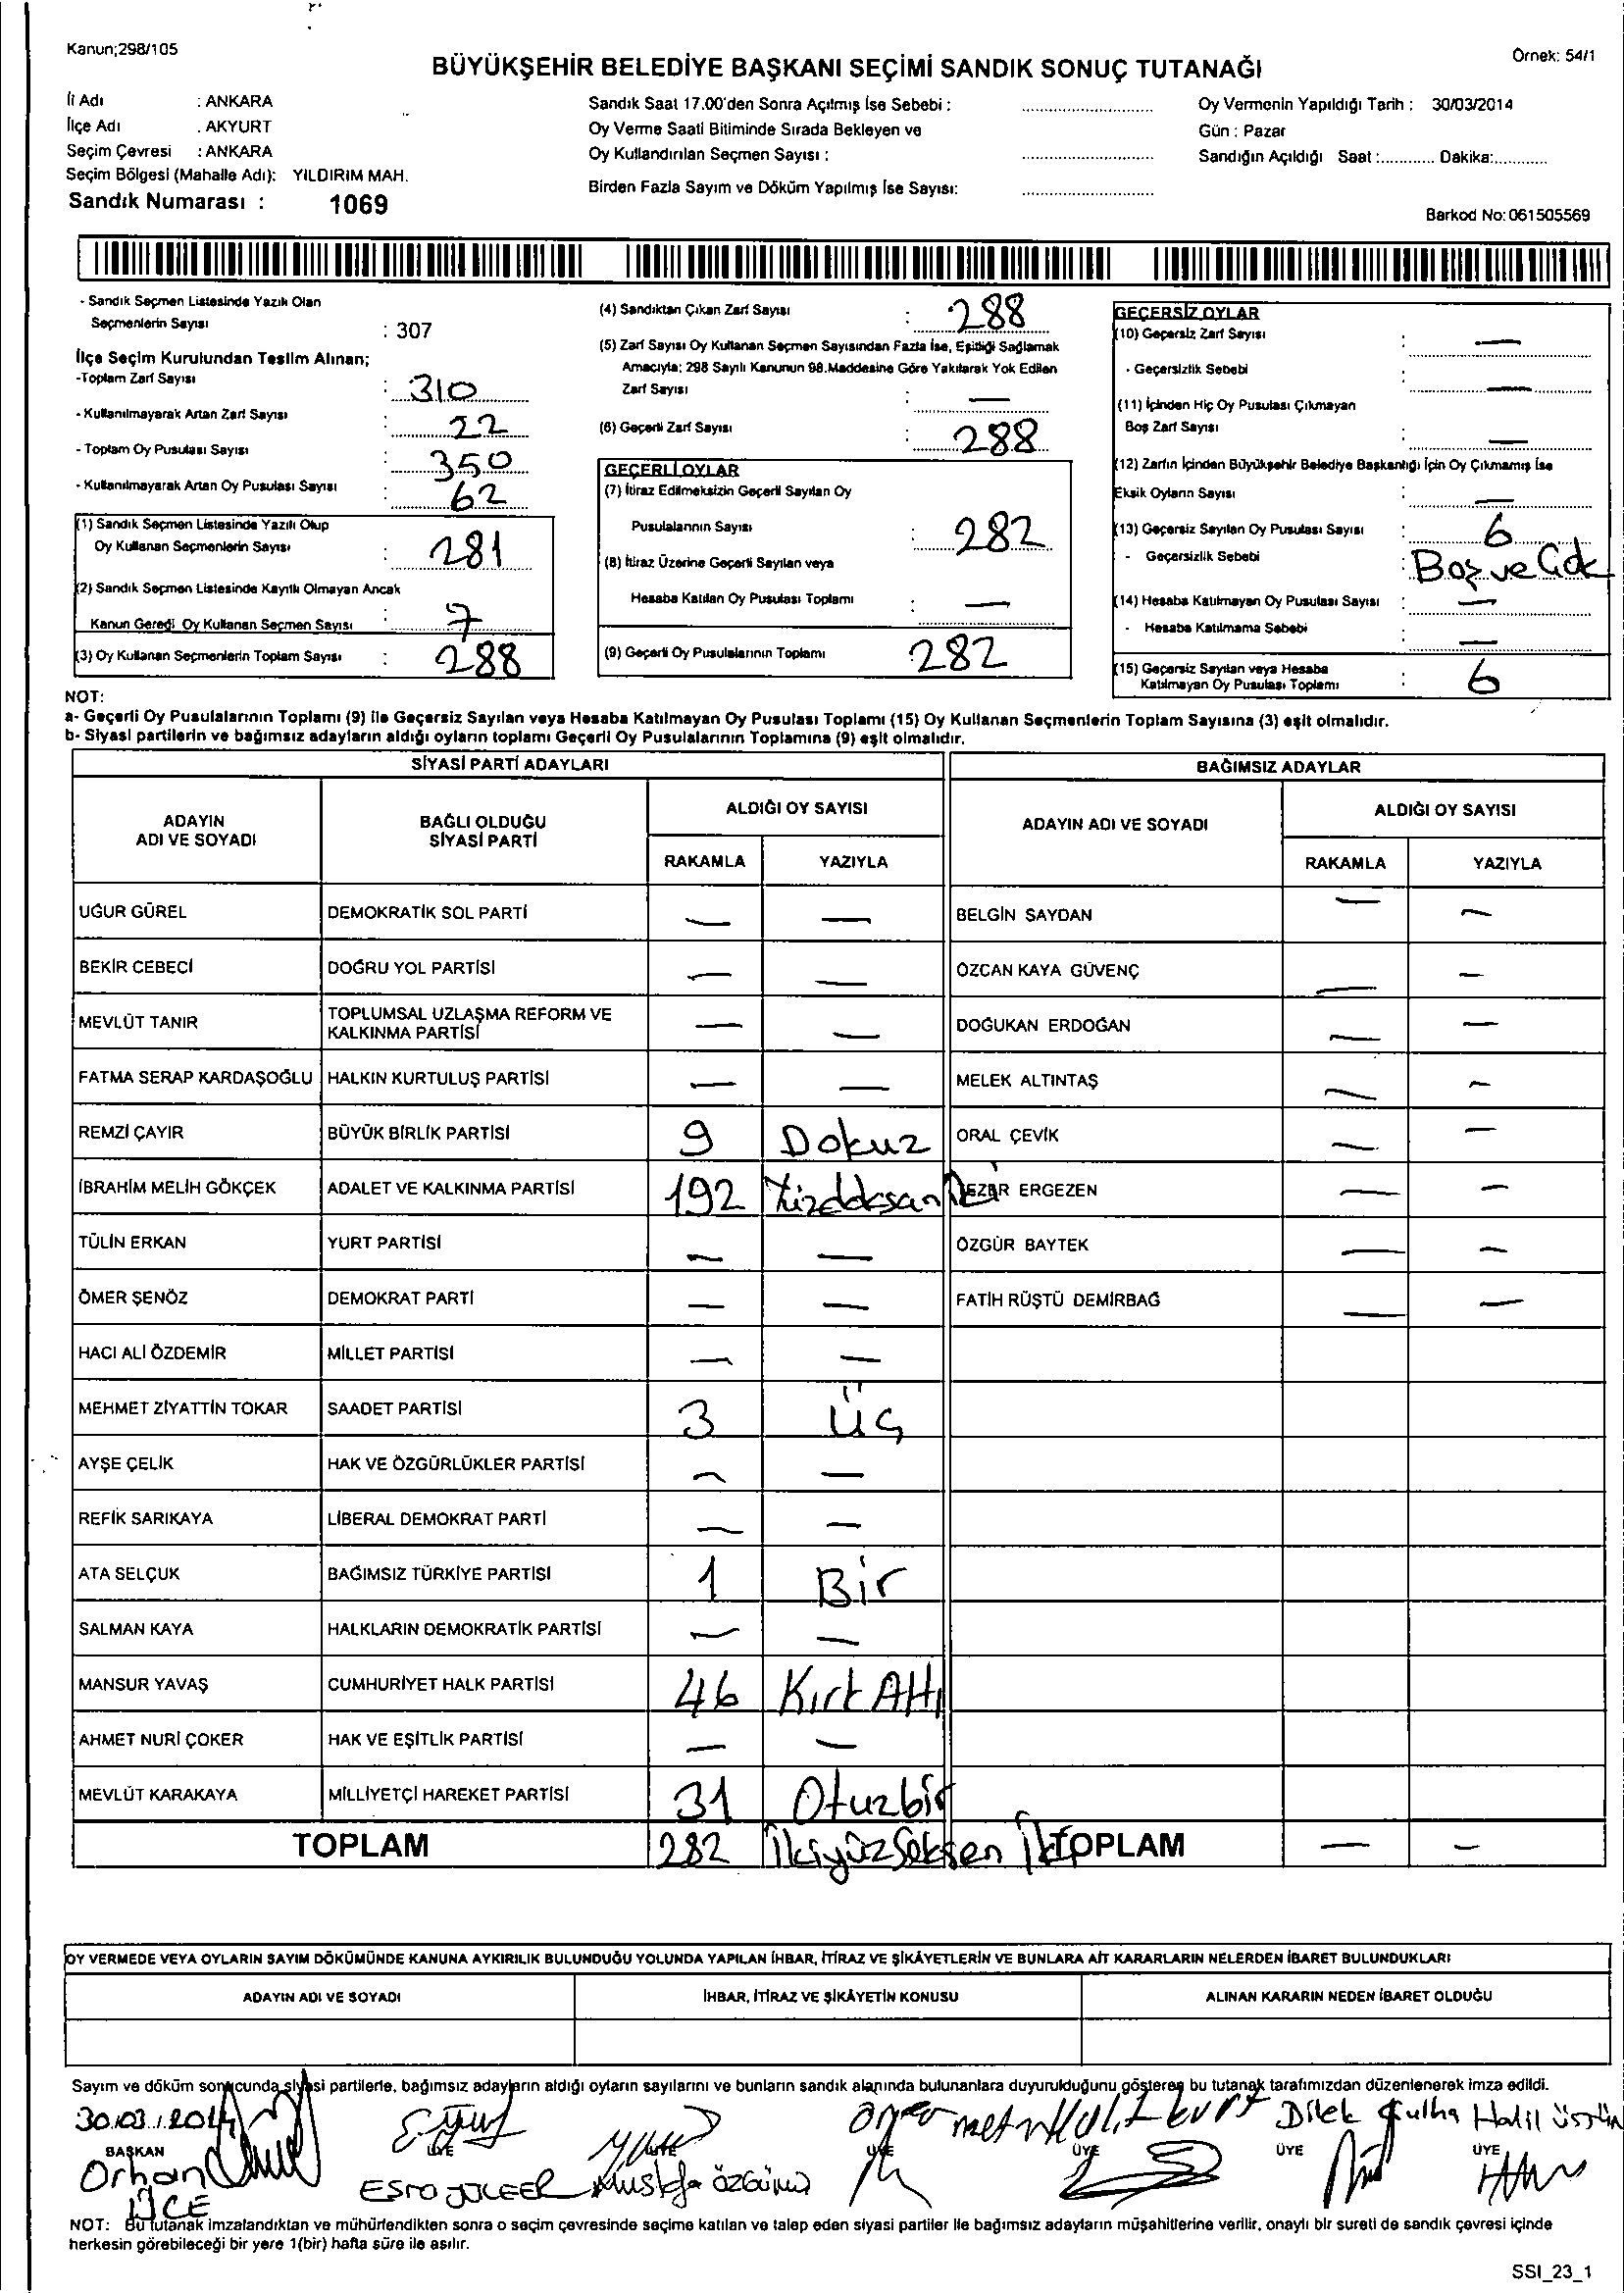 Kanun;298/105
Örnek: 54/1
BÜYÜKŞEHİR BELEDİYE BAŞKANI SEÇİMİ SANDIK SONUÇ TUTANAĞI
İl Adı : ANKARA
İlçe Adı : AKYURT
Seçim Çevresi : ANKARA
Seçim Bölgesi (Mahalle Adı): YILDIRIM MAH.
Sandık Numarası : 1069
Sandık Saat 17.00'den Sonra Açılmış İse Sebebi :
Oy Verme Saati Bitiminde Sırada Bekleyen ve
Oy Kullandırılan Seçmen Sayısı :
Birden Fazla Sayım ve Döküm Yapılmış İse Sayısı:
Oy Vermenin Yapıldığı Tarih : 30/03/2014
Gün : Pazar
Sandığın Açıldığı Saat :............ Dakika:............
Barkod No: 061505569
- Sandık Seçmen Listesinde Yazılı Olan
Seçmenlerin Sayısı : 307
İlçe Seçim Kurulundan Teslim Alınan;
-Toplam Zarf Sayısı : 310
- Kullanılmayarak Artan Zarf Sayısı : 22
- Toplam Oy Pusulası Sayısı : 350
- Kullanılmayarak Artan Oy Pusulası Sayısı : 62
(1) Sandık Seçmen Listesinde Yazılı Olup
Oy Kullanan Seçmenlerin Sayısı : 281
(2) Sandık Seçmen Listesinde Kayıtlı Olmayan Ancak
Kanun Gereği Oy Kullanan Seçmen Sayısı : 7
(3) Oy Kullanan Seçmenlerin Toplam Sayısı : 288
(4) Sandıktan Çıkan Zarf Sayısı : 288
(5) Zarf Sayısı Oy Kullanan Seçmen Sayısından Fazla İse, Eşitliği Sağlamak
Amacıyla; 298 Sayılı Kanunun 98.Maddesine Göre Yakılarak Yok Edilen
Zarf Sayısı : —
(6) Geçerli Zarf Sayısı : 288
GEÇERLİ OYLAR
(7) İtiraz Edilmeksizin Geçerli Sayılan Oy
Pusulalarının Sayısı : 282
(8) İtiraz Üzerine Geçerli Sayılan veya
Hesaba Katılan Oy Pusulası Toplamı : —
(9) Geçerli Oy Pusulalarının Toplamı : 282
GEÇERSİZ OYLAR
(10) Geçersiz Zarf Sayısı : —
- Geçersizlik Sebebi : —
(11) İçinden Hiç Oy Pusulası Çıkmayan
Boş Zarf Sayısı : —
(12) Zarfın İçinden Büyükşehir Belediye Başkanlığı İçin Oy Çıkmamış İse
Eksik Oyların Sayısı : —
(13) Geçersiz Sayılan Oy Pusulası Sayısı : 6
- Geçersizlik Sebebi : Boş ve Çok
(14) Hesaba Katılmayan Oy Pusulası Sayısı : —
- Hesaba Katılmama Sebebi : —
(15) Geçersiz Sayılan veya Hesaba
Katılmayan Oy Pusulası Toplamı : 6
NOT:
a- Geçerli Oy Pusulalarının Toplamı (9) ile Geçersiz Sayılan veya Hesaba Katılmayan Oy Pusulası Toplamı (15) Oy Kullanan Seçmenlerin Toplam Sayısına (3) eşit olmalıdır.
b- Siyasi partilerin ve bağımsız adayların aldığı oyların toplamı Geçerli Oy Pusulalarının Toplamına (9) eşit olmalıdır.
SİYASİ PARTİ ADAYLARI
ADAYIN ADI VE SOYADI BAĞLI OLDUĞU SİYASİ PARTİ ALDIĞI OY SAYISI
RAKAMLA YAZIYLA
UĞUR GÜREL DEMOKRATİK SOL PARTİ — —
BEKİR CEBECİ DOĞRU YOL PARTİSİ — —
MEVLÜT TANIR TOPLUMSAL UZLAŞMA REFORM VE KALKINMA PARTİSİ — —
FATMA SERAP KARDAŞOĞLU HALKIN KURTULUŞ PARTİSİ — —
REMZİ ÇAYIR BÜYÜK BİRLİK PARTİSİ 9 Dokuz
İBRAHİM MELİH GÖKÇEK ADALET VE KALKINMA PARTİSİ 192
TÜLİN ERKAN YURT PARTİSİ — —
ÖMER ŞENÖZ DEMOKRAT PARTİ — —
HACI ALİ ÖZDEMİR MİLLET PARTİSİ — —
MEHMET ZİYATTİN TOKAR SAADET PARTİSİ 3 Üç
AYŞE ÇELİK HAK VE ÖZGÜRLÜKLER PARTİSİ — —
REFİK SARIKAYA LİBERAL DEMOKRAT PARTİ — —
ATA SELÇUK BAĞIMSIZ TÜRKİYE PARTİSİ 1 Bir
SALMAN KAYA HALKLARIN DEMOKRATİK PARTİSİ — —
MANSUR YAVAŞ CUMHURİYET HALK PARTİSİ 46 Kırk Altı
AHMET NURİ ÇOKER HAK VE EŞİTLİK PARTİSİ — —
MEVLÜT KARAKAYA MİLLİYETÇİ HAREKET PARTİSİ 31 Otuzbir
TOPLAM 282 İkiyüzSeksen İki
BAĞIMSIZ ADAYLAR
ADAYIN ADI VE SOYADI ALDIĞI OY SAYISI
RAKAMLA YAZIYLA
BELGİN SAYDAN — —
ÖZCAN KAYA GÜVENÇ — —
DOĞUKAN ERDOĞAN — —
MELEK ALTINTAŞ — —
ORAL ÇEVİK — —
ERGEZEN — —
ÖZGÜR BAYTEK — —
FATİH RÜŞTÜ DEMİRBAĞ — —
TOPLAM — —
OY VERMEDE VEYA OYLARIN SAYIM DÖKÜMÜNDE KANUNA AYKIRILIK BULUNDUĞU YOLUNDA YAPILAN İHBAR, İTİRAZ VE ŞİKÂYETLERİN VE BUNLARA AİT KARARLARIN NELERDEN İBARET BULUNDUKLARI
ADAYIN ADI VE SOYADI İHBAR, İTİRAZ VE ŞİKÂYETİN KONUSU ALINAN KARARIN NEDEN İBARET OLDUĞU
Sayım ve döküm sonucunda siyasi partilerle, bağımsız adayların aldığı oyların sayılarını ve bunların sandık alanında bulunanlara duyurulduğunu gösteren bu tutanak tarafımızdan düzenlenerek imza edildi.
30.03.2014
BAŞKAN ÜYE ÜYE ÜYE ÜYE ÜYE ÜYE
Dilek Halil
Orhan
Mustafa
NOT: Bu tutanak imzalandıktan ve mühürlendikten sonra o seçim çevresinde seçime katılan ve talep eden siyasi partiler ile bağımsız adayların müşahitlerine verilir, onaylı bir sureti de sandık çevresi içinde
herkesin görebileceği bir yere 1(bir) hafta süre ile asılır.
SSI_23_1